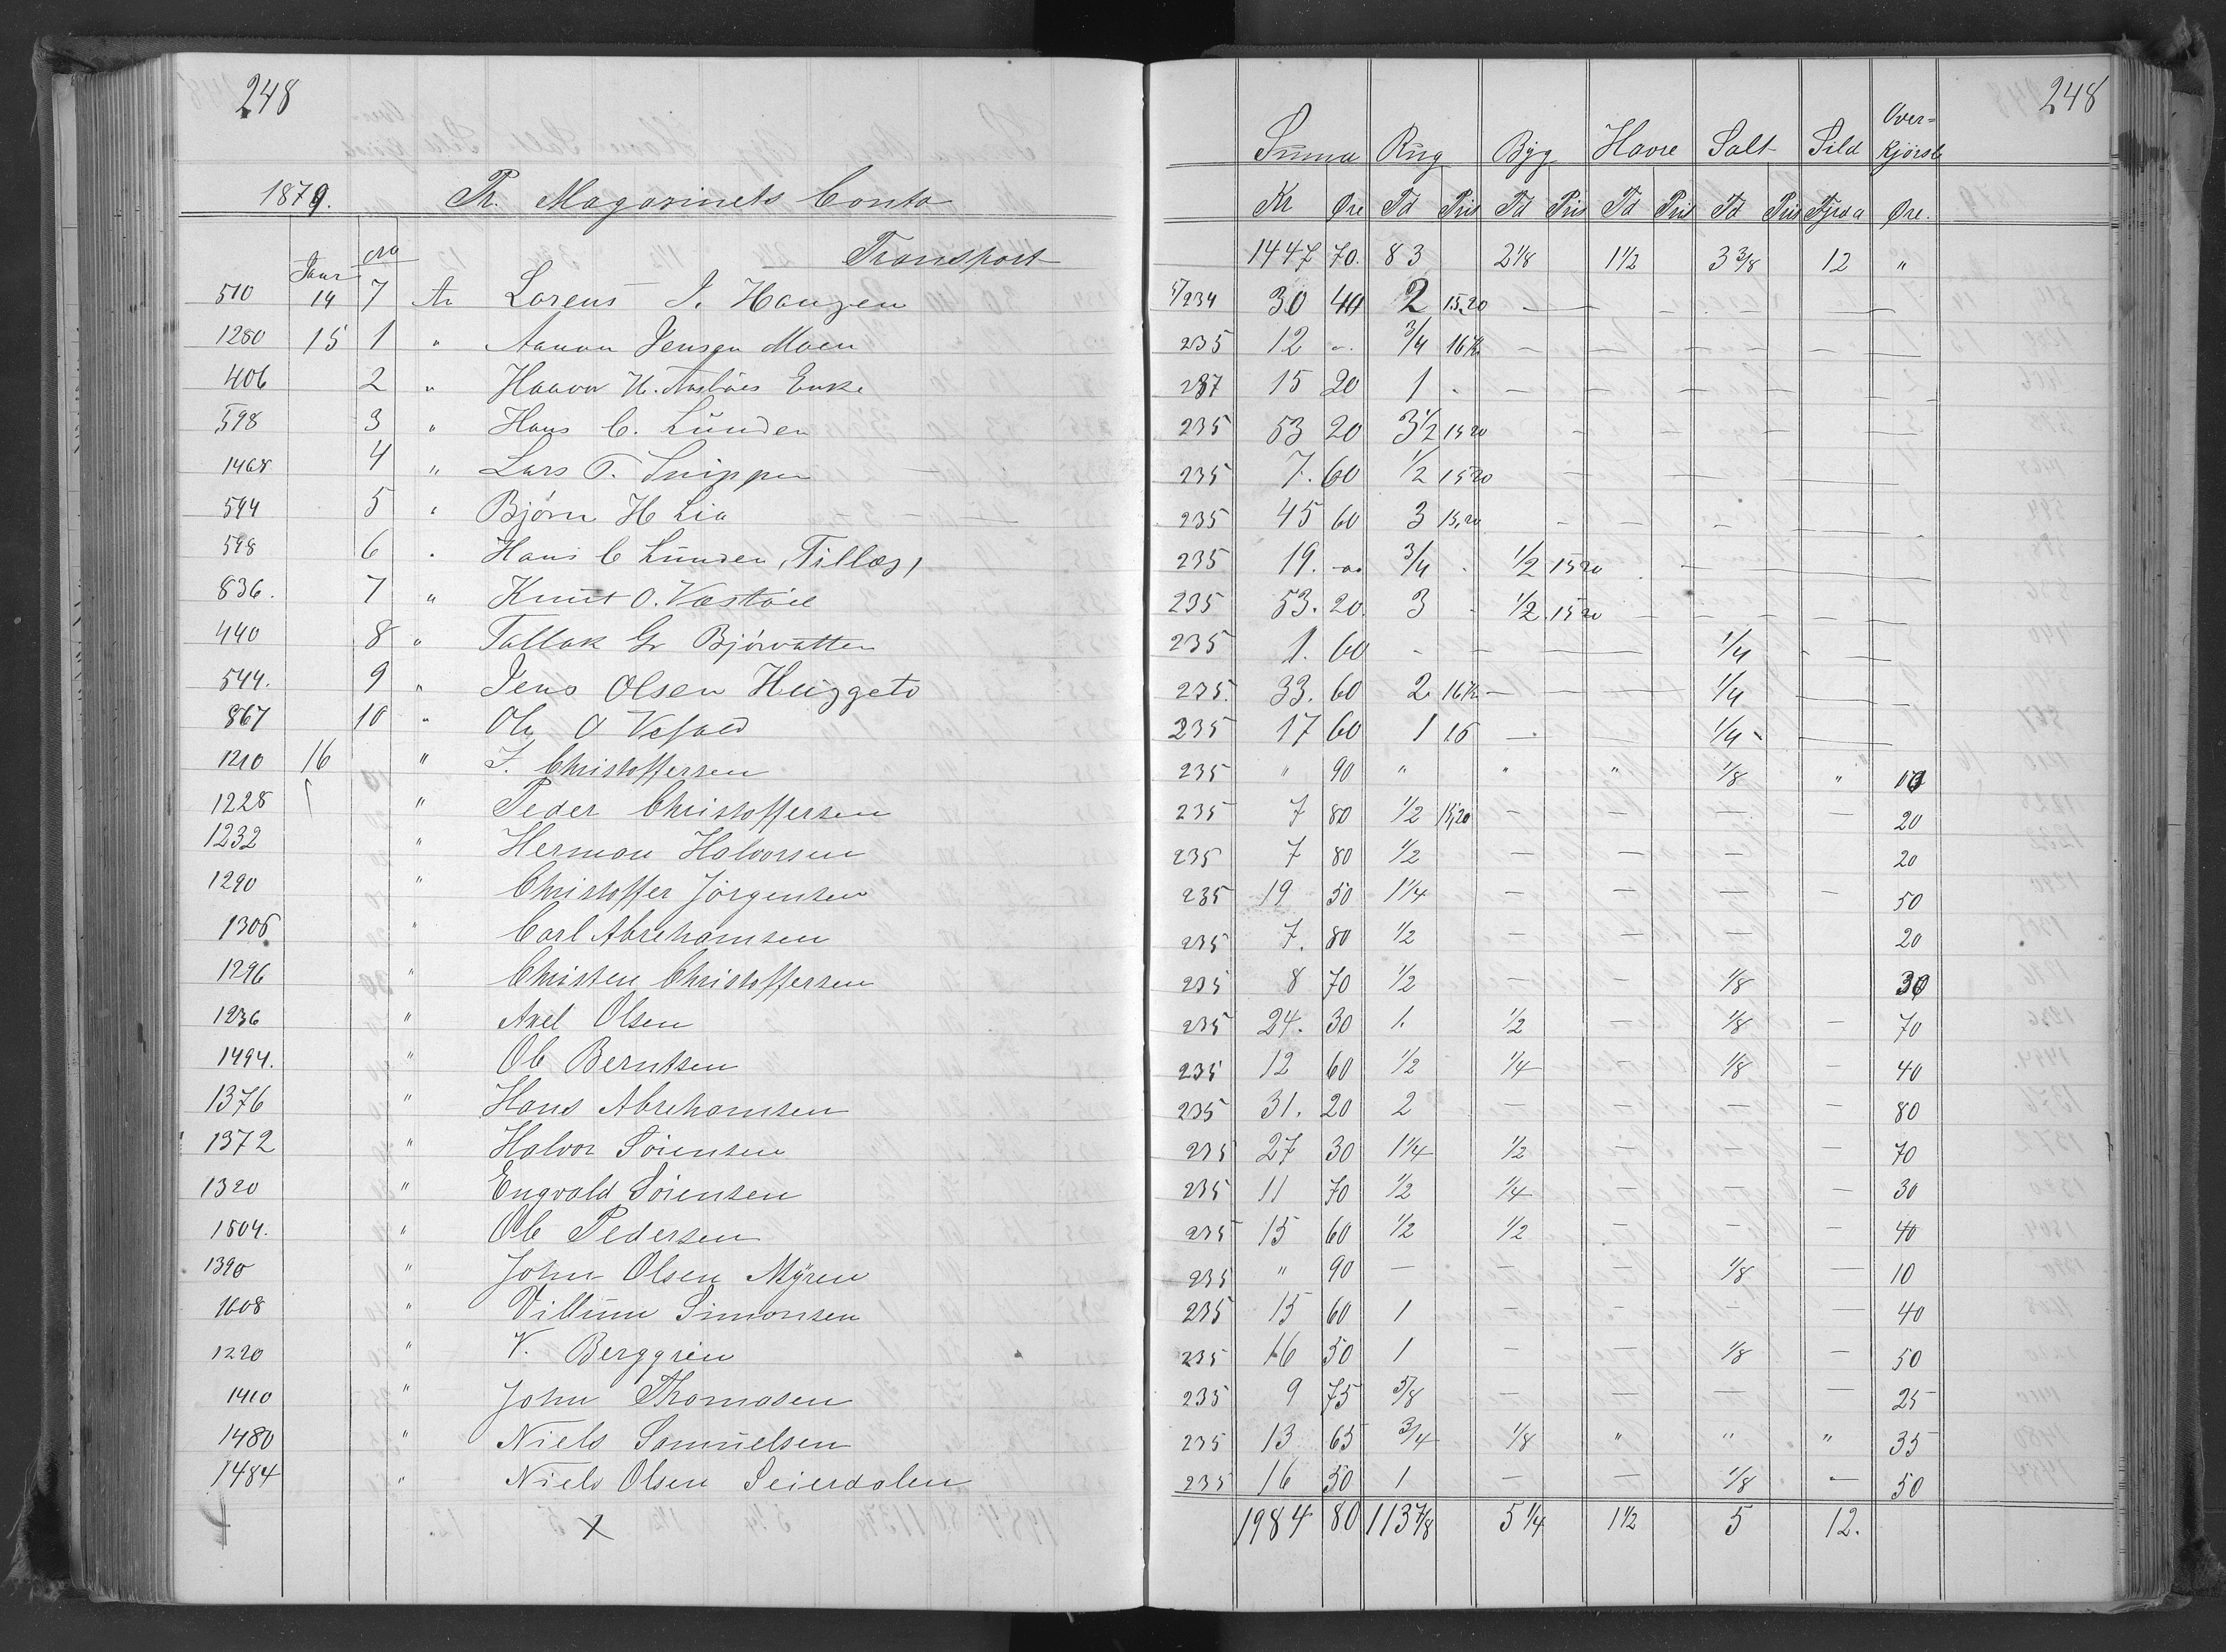 248 248
Summa Rug Byg Havre Salt Sild Over=kjørsle
1879. Pr. Magasinets Conto Kr Øre Td Pris Td Pris Td Pris Td Pris Fjrd a Øre.
Janr No Transport 1447 70. 83 2 1/8 1 1/2 3 3/8 12 "
510 14 7 An Lorens J. Haugen 234 30 40 2 15,20 — — — — —
1280 15 1 " Aanon Jensen Moen 235 12 " 3/4 16 Kr — — — — —
406 2 " Haavor H. Enke 287 15 20 1 - — — — — —
598 3 " Hans C. Lunden 235 53 20 3 1/2 15 20 — — — —
1468 4 " Lars T. Snippen 235 7. 60 1/2 15 20 — — — —
594 5 " Bjørn H Lia 235 45 60 3 15,20 — — — —
598 6 " Hans C Lunden (Tillæg) 235 19. " 3/4 - 1/2 15 20 — — —
836. 7 " Knut O. Væstøl 235 53. 20. 3 - 1/2 15 20 — — — —
440 8 " Tallak G Bjørvatten 235 1. 60 - — — 1/4 — —
544. 9 " Jens Olsen Huggeto 235. 33. 60 2 16 Kr — — 1/4 — —
867 10 " Ole O Vefald 235 17 60 1 16 — — 1/4 — —
1210 16 " J. Christoffersen 235 " 90 " " " 1/8 " 10
1228 " Peder Christoffersen 235 7 80 1/2 15,20 — — — — 20
1232 " Herman Halvorsen 235 7 80 1/2 — — — 20
1290 " Christoffer Jörgensen 235 19 50 1 1/4 — — — — 50
1306 " Carl Abrehamsen 235 7. 80 1/2 — — — 20
1296 " Christen Christoffersen 235 8 70 1/2 — — 1/8 30
1236 " Axel Olsen 235 24. 30 1. 1/2 — 1/8 — 70
1494. " Ole Berntsen 235 12 60 1/2 1/4 — 1/8 — 40
1376 " Hans Abrehamsen 235 31. 20 2 — — — — 80
1372 " Halvor Sörensen 235 27 30 1 1/4 1/2 — — — 70
1320 " Engvald Sörensen 235 11 70 1/2 1/4 — — — 30
1504. " Ole Pedersen 235 15 60 1/2 1/2 — — — 40
1390 " John Olsen Myren 235 " 90 — — — 1/8 — 10
1608 " Villum Simonsen 235 15 60 1 — — — — 40
1220 " V. Berggren 235 16 50 1 — — 1/8 — 50
1410 " John Thomasen 235 9 75 5/8 — — — — 25
1480 " Niels Samuelsen 235 13 65 3/4 1/8 " " " 35
1484 " Niels Olsen Seierdalen 235 16 50 1 — — 1/8 — 50
X 1984 80 113 7/8 5 1/4 1 1/2 5 12.